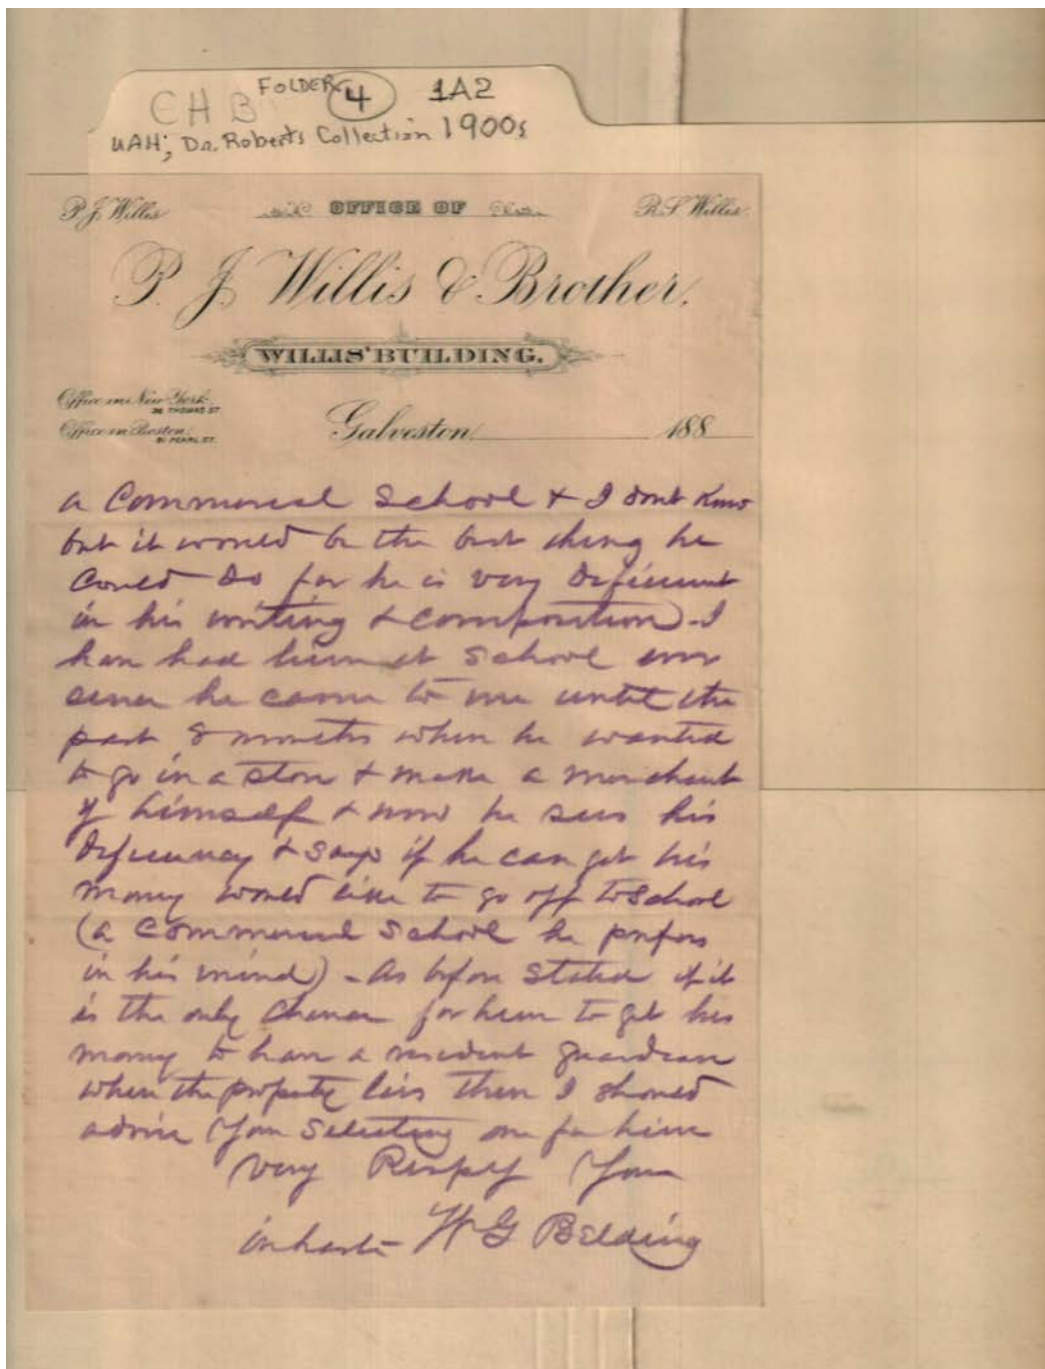 CHB FOLDER 4 1A2
UAH; Dr. Roberts Collection 1900s
P. J. Willis OFFICE OF R. S. Willis
P. J. Willis & Brother.
WILLIS' BUILDING.
Office in New York,
36 THOMAS ST
Office in Boston,
PEARL ST.
Galveston, 188
a Commercial School & I dont Know
but it would be the best thing he
Could Do for he is very Deficient
in his writing & composition) - I
have had him at School ever
since he came to me until the
past 8 months when he wanted
to go in a store & make a merchant
of himself & now he sees his
Deficiency & says if he can get his
money would like to go off to School
(a Commercial School he prefers
in his mind) - As before Stated if it
is the only Chance for him to get his
money to have a resident guardian
where the property lies then I should
advise your Selecting one for him
Very Respfy Your
in haste W G Belding